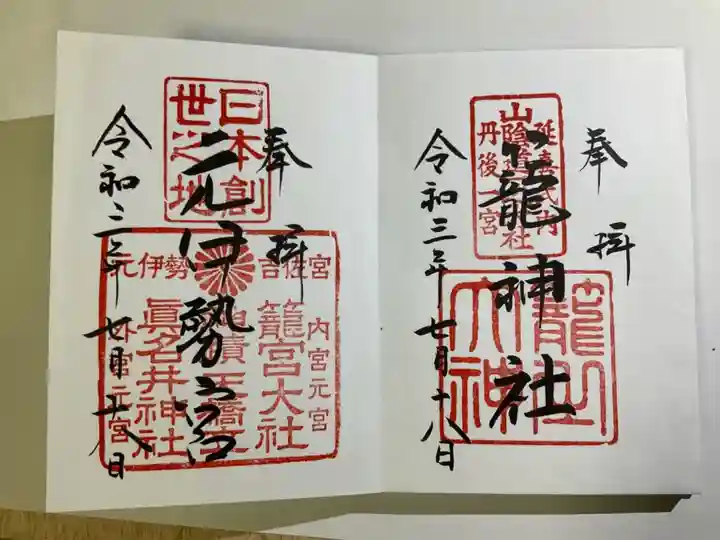 奉拝
籠神社
令和三年七月十八日
山陰道
丹後一宮
籠之大神
奉拝
元伊勢宮
令和三年七月十八日
日本創
世之地
元伊勢
吉佐宮
内宮元宮
籠宮大社
眞名井神社
外宮元宮